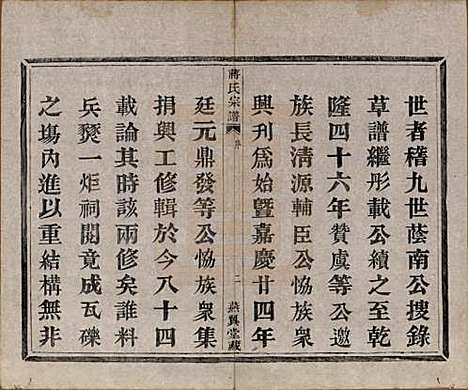 世者稽九世蔭南公搜錄
草譜繼形載公續之至乾
隆四十六年贊虞等公邀
族長淸源輔臣公恊族衆
興刊爲始曁嘉慶廿四年
蔣氏宗譜
序
二
燕翼堂藏
廷元鼎發等公恊族衆集
捐興工修輯於今八十四
載論其時該兩修矣誰料
兵燹一炬祠閣竟成瓦礫
之塲內進以重結構無非